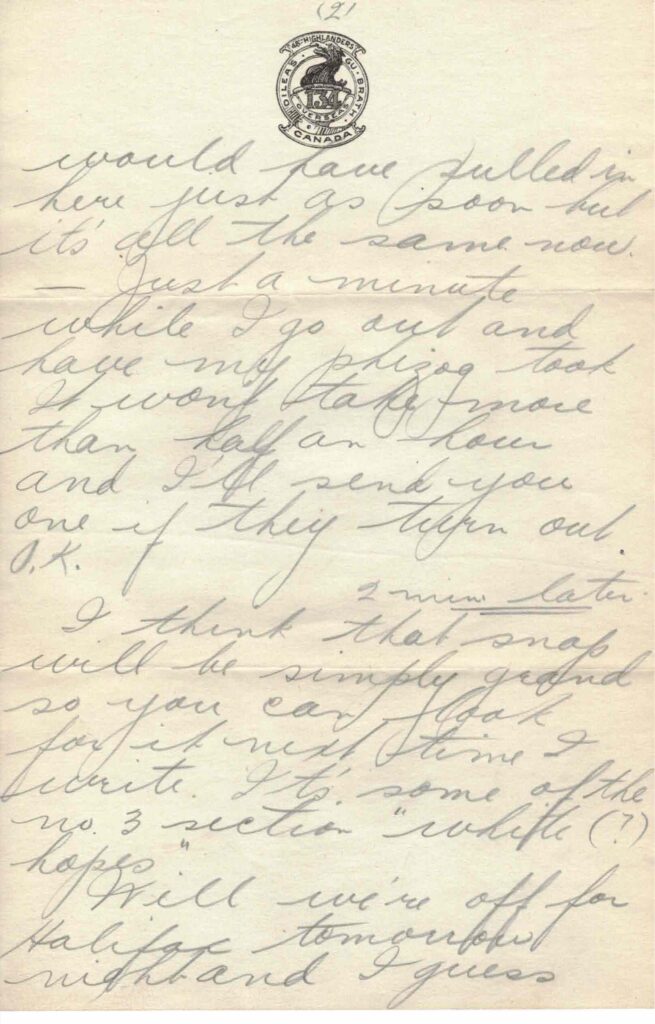 (2)
48TH HIGHLANDERS
DILEAS GU BRATH
134
OVERSEAS
CANADA
would have pulled in
here just as soon but
it's all the same now.
— Just a minute
while I go out and
have my phizog took
It won't take more
than half an hour
and I'll send you
one if they turn out
O.K.
2 min later.
I think that snap
will be simply grand
so you can look
for it next time I
write. It's some of the
no. 3 section "white (?)
hopes"
Well we're off for
Halifax tomorrow
night and I guess